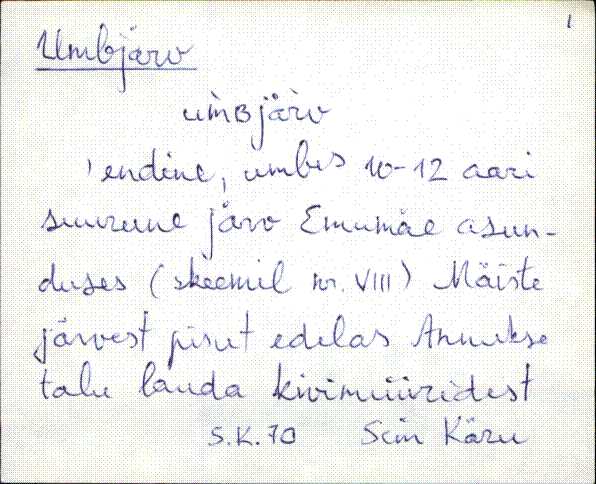 1
Umbjärv
umʙjäřv
'endine, umbes 10-12 aari
suurune järv Emumäe asun-
duses (skeemil nr. VIII) Mäiste
järvest pisut edelas Annukse
talu lauda kivimüüridest
S.K. 70 Siin Käru